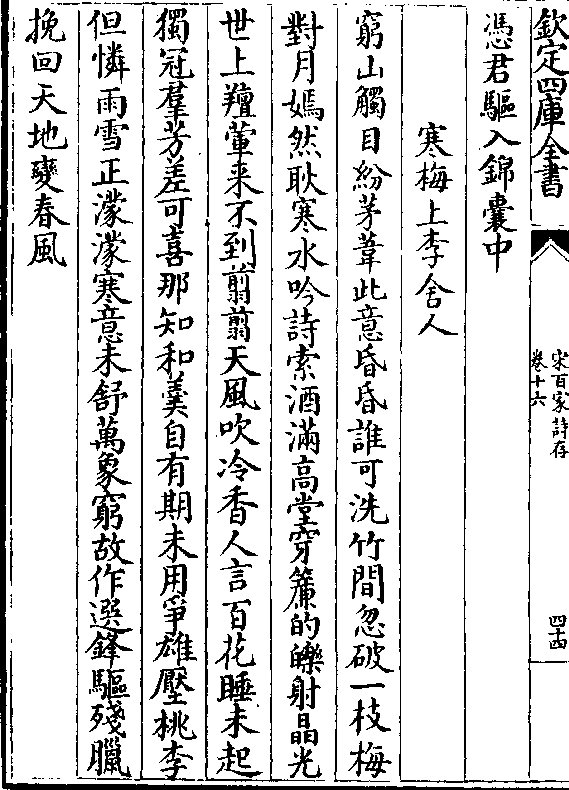 欽定四庫全書
宋百家詩存
卷十六
四十四
馮君驅入錦囊中
寒梅上李舍人
窮山觸目紛茅葦此意昏昏誰可洗竹間忽破一枝梅
對月嫣然耿寒水吟詩索酒滿高堂穿簾的皪射晶光
世上羶葷来不到翦翦天風吹冷香人言百花睡未起
獨冠羣芳差可喜那知和羹自有期未用爭雄壓桃李
但憐雨雪正濛濛寒意未舒萬象窮故作選鋒驅殘臘
挽回天地變春風